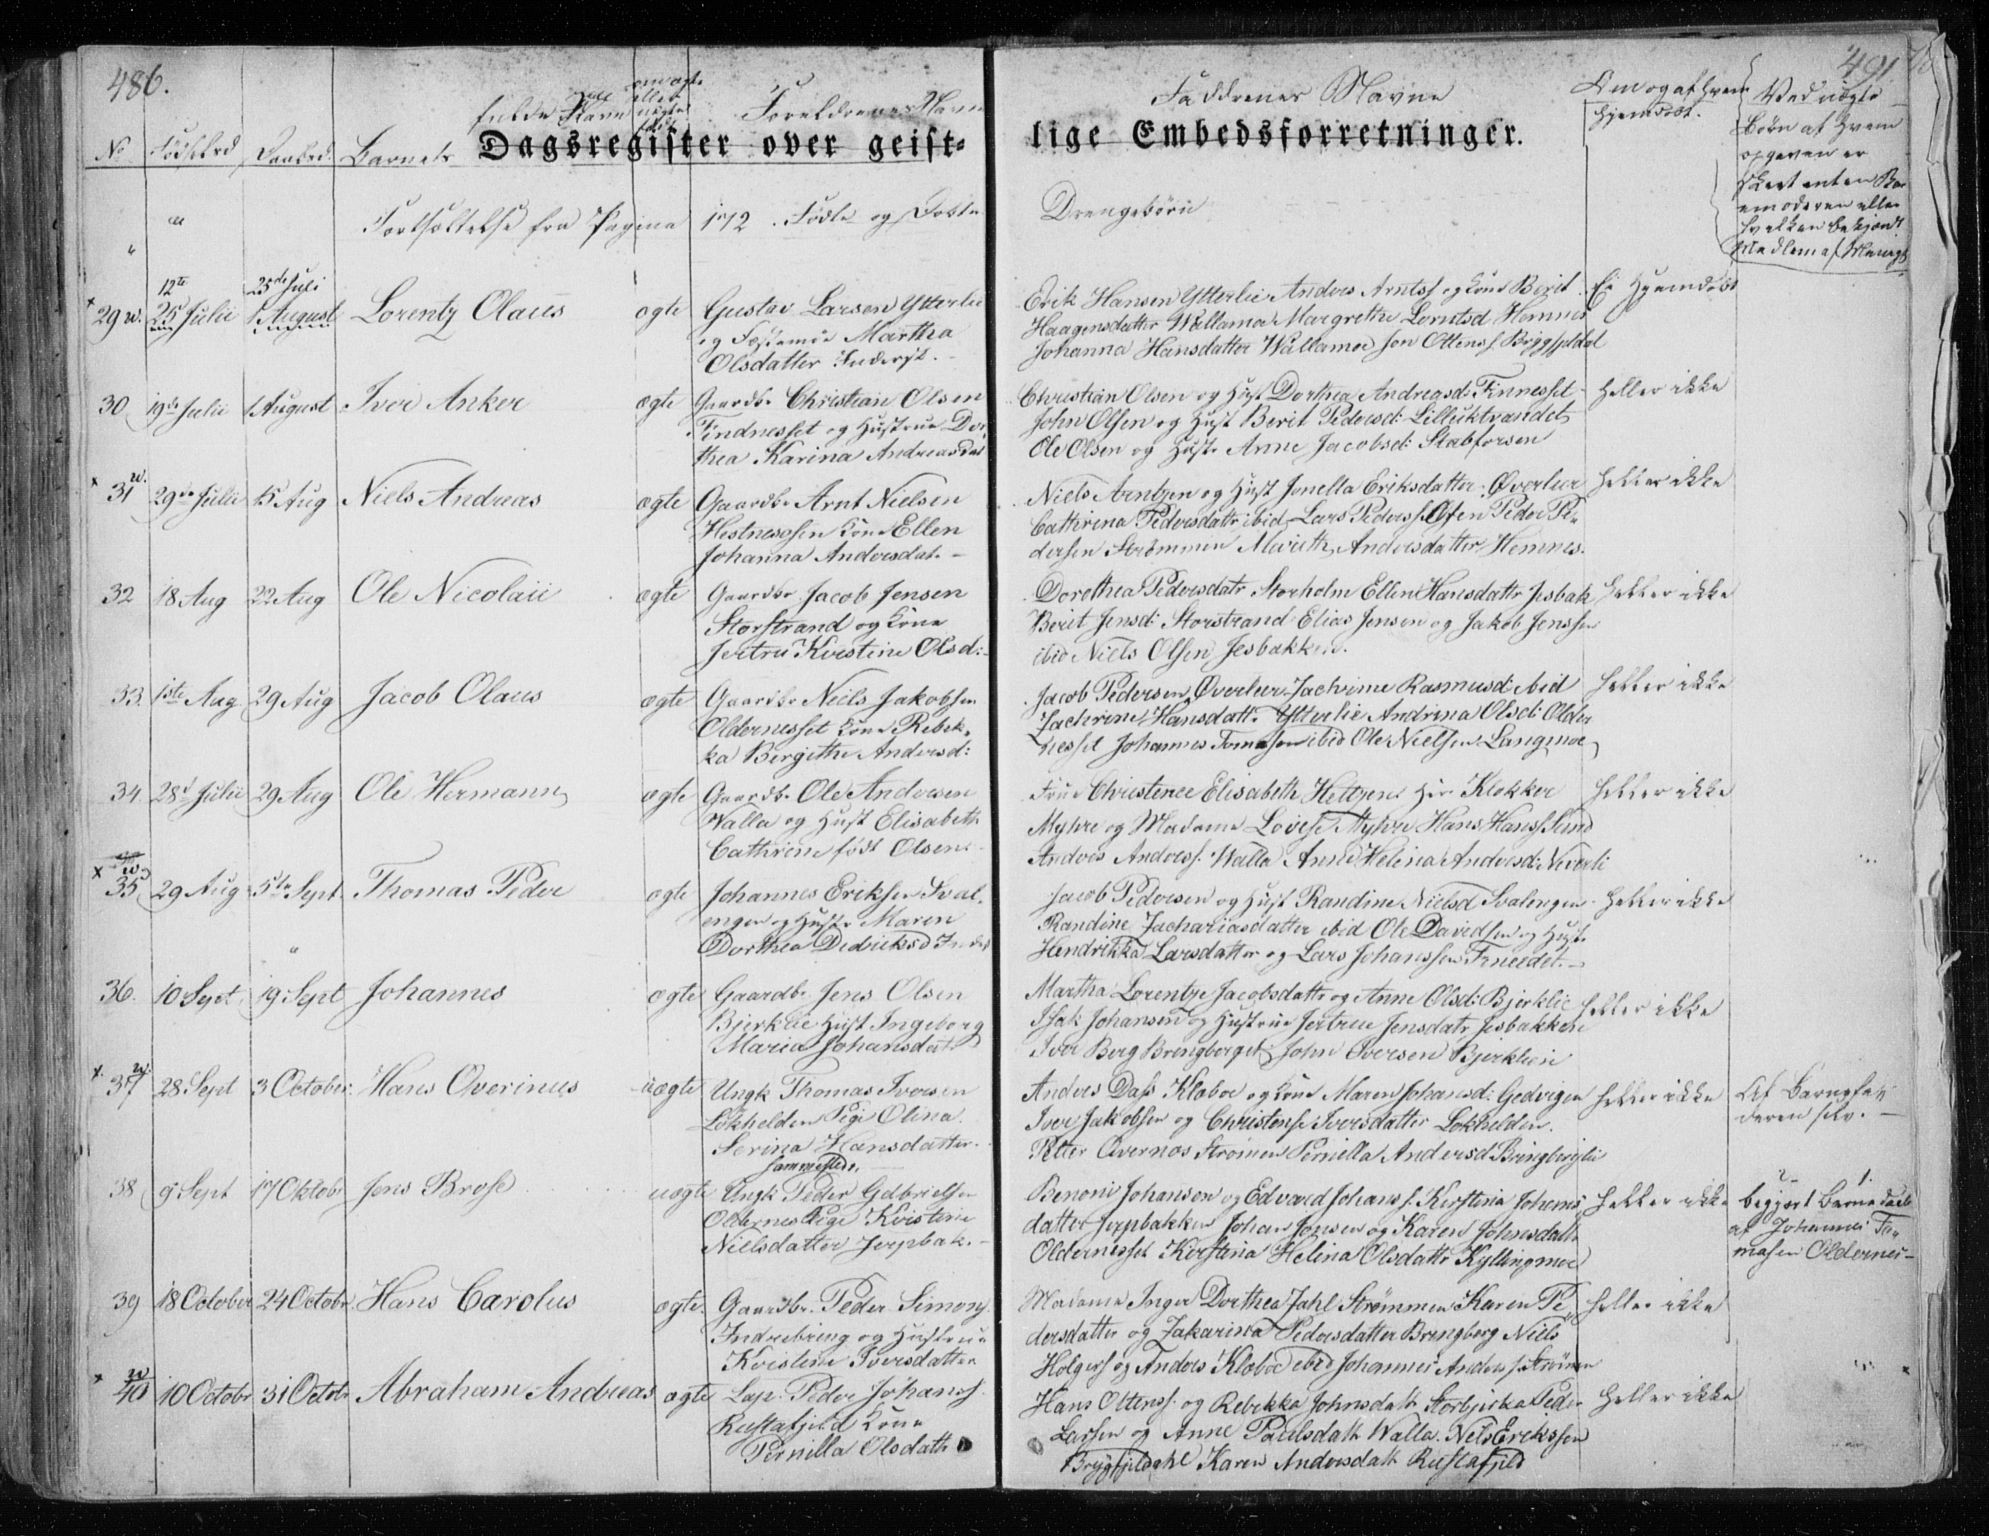 486.
491
No Födsled Daabsd: Barnets fulde Navn ægte eller uægte Foreldrenes Navne
Dagsregister over geist=
Faddrenes Navne
lige Embedsforretninger.
Om og af hvem hjemdöbt.
Ved uægte Börn af hvem opgaven er skeet enten Barnemoderen eller hvilken bekjendt Medlem af Menigh
" Fortsættelse fra Pagina 172. Födte og Döbte Drengebörn
"
12te 25de Juli
× 29 w. 25 Julii 1 August Lorentz Olaus ægte Gustav Larsen Ytterlie
og Fæstemöe Martha
Olsdatter Inderst.
Erik Hansen Ytterlie Anders Arntss og Kone Berit
Haagensdatter Wallamoe Margrethe Lorntsd Hemnes
Johanna Hansdatter Wallamoe Jon Ottens. Bryggfjeldal
Ei Hjemdöbt
30 19de Julii 1 August Iver Anker ægte Gaardbr Christian Olsen
Findnesset og Hustrue Dor,
thea Karina Andreasdat
Christian Olsen og Hust Dorthea Andreasd: Finnesset
John Olsen og Hust Berit Pedersd: Lilleuktvandet
Ole Olsen og Hust. Anne Jacobsd: Stabforsen
heller ikke
× 31 w. 29de Julii 15 Aug Niels Andreas ægte Gaardbr Arnt Nielsen
Hestnesosen Kone Ellen
Johanna Andersdat.
Niels Arntzen og Hust Jonella Eriksdatter Överleer
Cathrina Pedersdattr ibid Lars Peders. Osen Peder Pe-
dersen Strömmen Mereth Andersdatter Hemnes.
heller ikke
32 18 Aug 22 Aug Ole Nicolaii ægte Gaardbr Jacob Jensen
Storstrand og Kone
Jertru Kirstine Olsd:
Dorothea Pedersdatr Storholm Ellen Hansdattr Jesbak
Berit Jensd: Storstrand Elias Jensen og Jakob Jenssen
ibid Niels Olsen Jesbakken.
heller ikke
33. 1ste Aug 29 Aug Jacob Olaus ægte Gaardbr Neils Jakobsen
Oldernesset Kone Rebek,
ka Bergithe Andersd:
Jacob Pedersen Överleer Jachrine Rasmusd: ibid
Zachrine Hansdattr Ytterlie Andrina Olsd: Older
nesset Johannes Tomasen ibid Ole Nielsen Langmoe
heller ikke
34. 28d Julii 29 Aug Ole Hermann ægte Gaardbr Ole Andersen
Walla og Hust Elisabeth
Cathrine födt Olsen
Frue Christence Elisabeth Heltzen Hr Klokker
Myhre og Madame Lovise Myhre Hans Hans. Sund
Anders Anderss. Walla Anne Helena Andersd: Neverli
heller ikke
× w 35 29 Aug 5te Sept. Thomas Peder ægte Johannes Eriksen Sval,
engen og Hustr Maren
Dorthea Dedricksd Inderst
Jacob Pedersen og Hust Randine Nielsd Svalengen
Randine Zachariasdatter ibid Ole Davidsen og Hust.
Hendrikka Larsdatter og Lars Johanssen Fineidet.
heller ikke
36. 10 Sept 19 Sept Johannes ægte Gaardbr Jens Olsen
Bjerklie Hust Ingeborg
Maria Johansdat
Martha Lorentze Jacobsdattr og Anne Olsd: Bjerklie
Isak Johansen og Hustrue Jertrue Jensdatr Jesbakken
Iver Berg Bringberget John Iversen Bjerklien
heller ikke
× w. 37 28 Sept 3 October Hans Overinus uægte Ungk Thomas Iversen
Lökhelden Pige Olina
Serina Hansdatter
sammesteds.
Anders Dass Kloboe og Kone Maren Johansd: Gedvigen
Iver Jakobsen og Christense Iversdatter Lökhelden.
Petter Overnos Strömen Pernella Andersd Bringbergliu
heller ikke
Af Barnefa,
deren selv.
38 9 Sept 17 Oktobr Jens Brose uægte Ungk Peder Gabrielsen
Oldernes Pige Kristine
Nielsdatter Jerpbak.
Benoni Johansen og Edvard Johans. Kirstina Johanes
datter Jerpbakken Johan Jonsen og Karen Johnsdatr
Oldernesset Kirstina Helena Olsdattr Kyllingmoe
heller ikke
begjert Barnedaab
af Johannes To,
masen Oldernes
39 18 October 24 Octobr Hans Carolus ægte. Gaardbr. Peder Simons.
Indrebring og Hustrue
Kristine Iversdatter
Madame Inger Dorthea Jahl Strömmen Karen Pe
dersdatter og Zakarina Pedersdatter Bringberg Niels
Holgers og Anders Kloboe ibid Johannes Anders. Strömen
heller ikke
× w 40 10 Octobr 31 Octobr Abraham Andreas ægte Lap. Peder Johans.
Rustafjeld Kone
Pernilla Olsdattr
Hans Ottens. og Rebekka Johnsdatr Storbjerka Peder
Larsen og Anne Paulsdatr Walla. Nels Erickssen
Brygfjeldahl Karen Andersdatr Rustafjeld
heller ikke